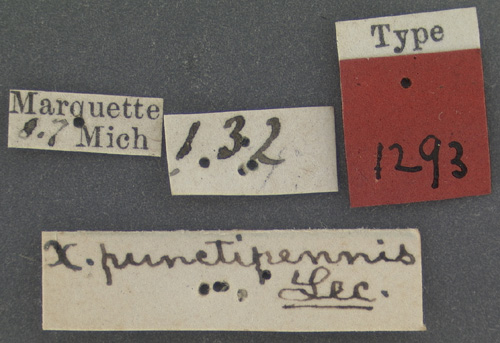 Marquette
8.7 Mich
132
Type
1293
X. punctipennis
Lec.